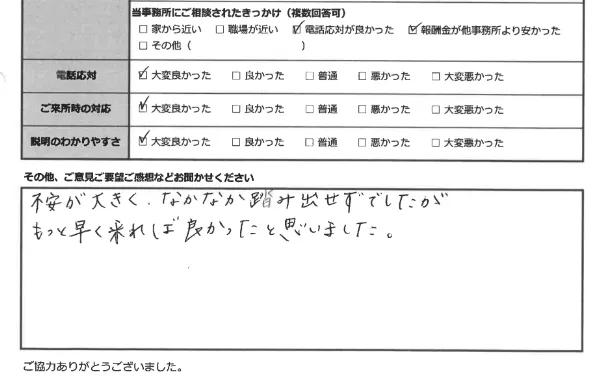 当事務所にご相談されたきっかけ（複数回答可）
□ 家から近い □ 職場が近い ☑ 電話応対が良かった ☑ 報酬金が他事務所より安かった
□ その他（ ）
電話応対 ☑ 大変良かった □ 良かった □ 普通 □ 悪かった □ 大変悪かった
ご来所時の対応 ☑ 大変良かった □ 良かった □ 普通 □ 悪かった □ 大変悪かった
説明のわかりやすさ ☑ 大変良かった □ 良かった □ 普通 □ 悪かった □ 大変悪かった
その他、ご意見ご要望ご感想などお聞かせください
不安が大きく、なかなか踏み出せずでしたが
もっと早く来れば良かったと思いました。
ご協力ありがとうございました。